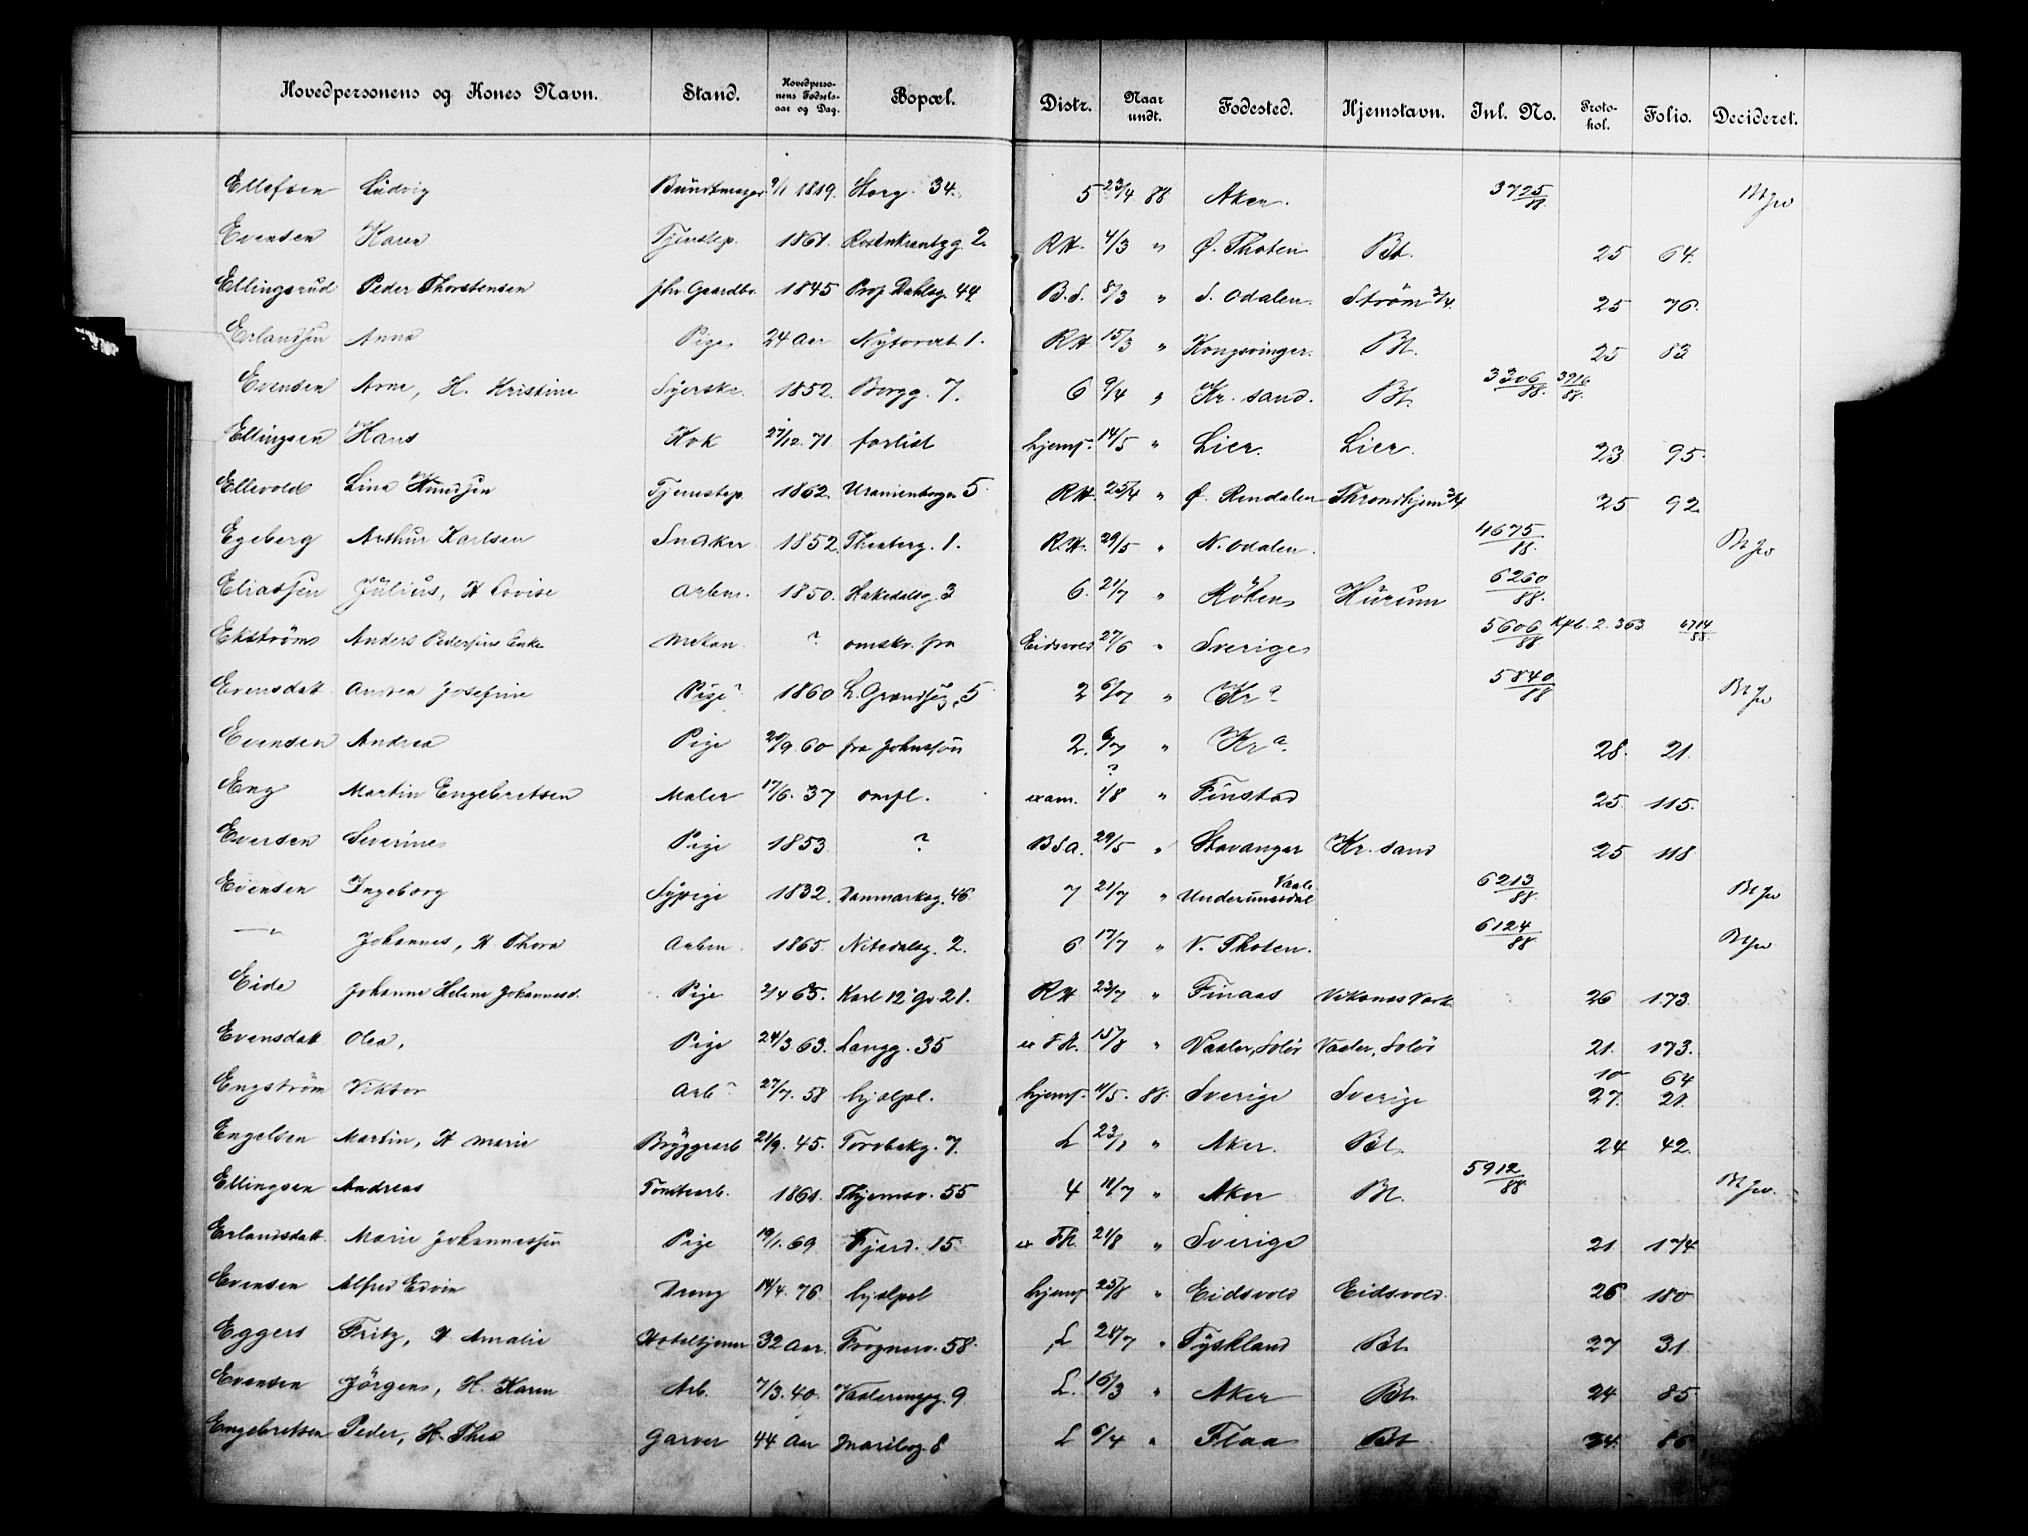 Hovedpersonens og Kones Navn. Stand. Hovedperso-nens Fødsels-aar og Dag. Bopæl. Distr. Naar undt. Fødested. Hjemstavn. Inl. No. Proto-kol. Folio. Decideret.
Ellefsen Ludvig Buntmager 9/1 1819. Storg. 34. 5 23/4 88 Aker. 3725/88 Bt
Evensen Karen Tjenstep. 1861. Rosenkrantzg. 2. RH. 4/3 " Ø. Thoten Bt. 25 64.
Ellingsrud Peder Thorstensen fhv Gaardbr. 1845 Prof. Dahlsg. 44 B.S. 8/3 " S. Odalen. Strøm 25 76.
Erlandsen Anna Pige 24 Aar Nytorvet 1. RH 15/3 " Kongsvinger. Bt. 25 83
Evensen Arne, H. Kristine Syerske. 1852. Borgg. 7. 6 9/4 " Kr. sand. Bt. 3306/88. 3916/88.
Ellingsen Hans Kok 27/12. 71. forlist hjemf. 14/5 " Lier. Lier. 23 95.
Ellevold Lina Knudsen Tjenstep 1862. Uranienborgv 5 RH. 25/4 " Ø. Rendalen Throndhjem 25 92
Egeberg Arthur Karlsen Snedker 1852. Theaterg. 1. RH. 29/5 " N. Odalen. 4675/88. Bt
Eliassen Julius, H Lovise Arbm. 1850. Hakedalsg. 3 6. 21/7 " Røken Hurum 6260/88.
Ekstrøm Anders Pedersens Enke Mekan. ? omskr. fra Eidsvold 27/6 " Sverige 5606/88 Kfb. 2. 363 6714/88
Evensdatt. Andrea Josefine Pige 1860 L. Grændseg. 5 2 6/7 " Kra 5840/88 Bt
Evensen Andrea Pige 20/9. 60 fra Johnsson 2. 6/7 " Kra. 28. 21.
Eng Martin Engebretsen Maler 17/6. 37 omfl. exam. ? 1/8 " Finstad 25 115.
Eversen Severine Pige 1853 ? BSa. 29/5 " Stavanger Kr. sand 25 118
Evensen Ingeborg Sypige 1832. Danmarksg. 46 7 21/7 " Vaale Underumsdal 6213/88. Bt
—"— Johannes, H. Thora Arbm. 1865. Nitedalsg. 2. 6 17/7 " V. Thoten. 6124/88. Bt
Eide Johanne Helene Johannesd. Pige 2/4 65. Karl 12' Gd 21. RH 23/7 " Finaas 26 173.
Evensdatt Olea, Pige 24/3. 63. Langg. 35 ex Fh. 18/8 " Vaaler, Solør Vaaler, Solør 21. 173.
Engström Viktor Arbr 27/7. 58 hjælpel. hjemf. 11/5. 88. Sverige Sverige 10 64 27. 21.
Engelsen Martin, H Marie Bryggearb 21/9. 45. Torvbakg. 7. L 23/1 " Aker. Bt. 24 42.
Ellingsen Andreas Tomtearb. 1861. Thjemsv. 55 4 11/7 " Aker Bt. 5912/88 Bt
Erlandsdatt. Marie Johannessen Pige 19/1. 69 Fjerd. 15. ex Fh. 21/8 " Sverige 21 174
Evensen Alfred Edvin Dreng 14/4. 76 hjælpel hjemf 25/8 " Eidsvold Eidsvold. 26. 180
Eggers Fritz, H Amalie Hotelhjener 32 Aar. Frognerv. 58. L 28/7 " Tyskland Bt. 27 31.
Evensen Jörgen, H. Karen Arb. 7/3. 40. Vaalerengg. 9 L. 16/3 " Aker Bt. 24 85
Engebretsen Peder, H. Thea Garver 44 Aar Maribog. 8 L 6/4 " Flaa Bt 24. 86